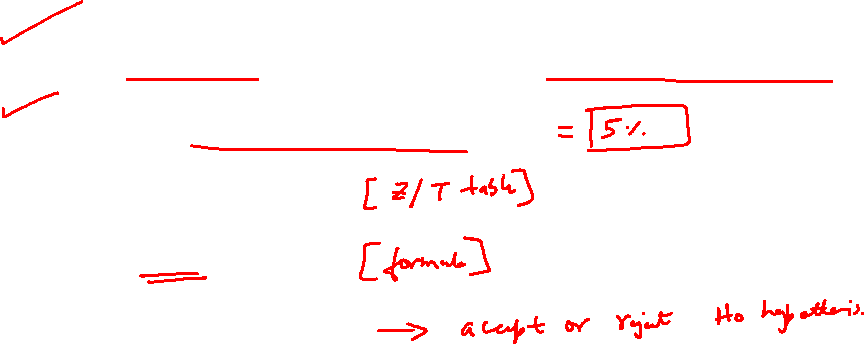 = 5%
[Z/T table]
[formula]
→ accept or reject Ho hypothesis.